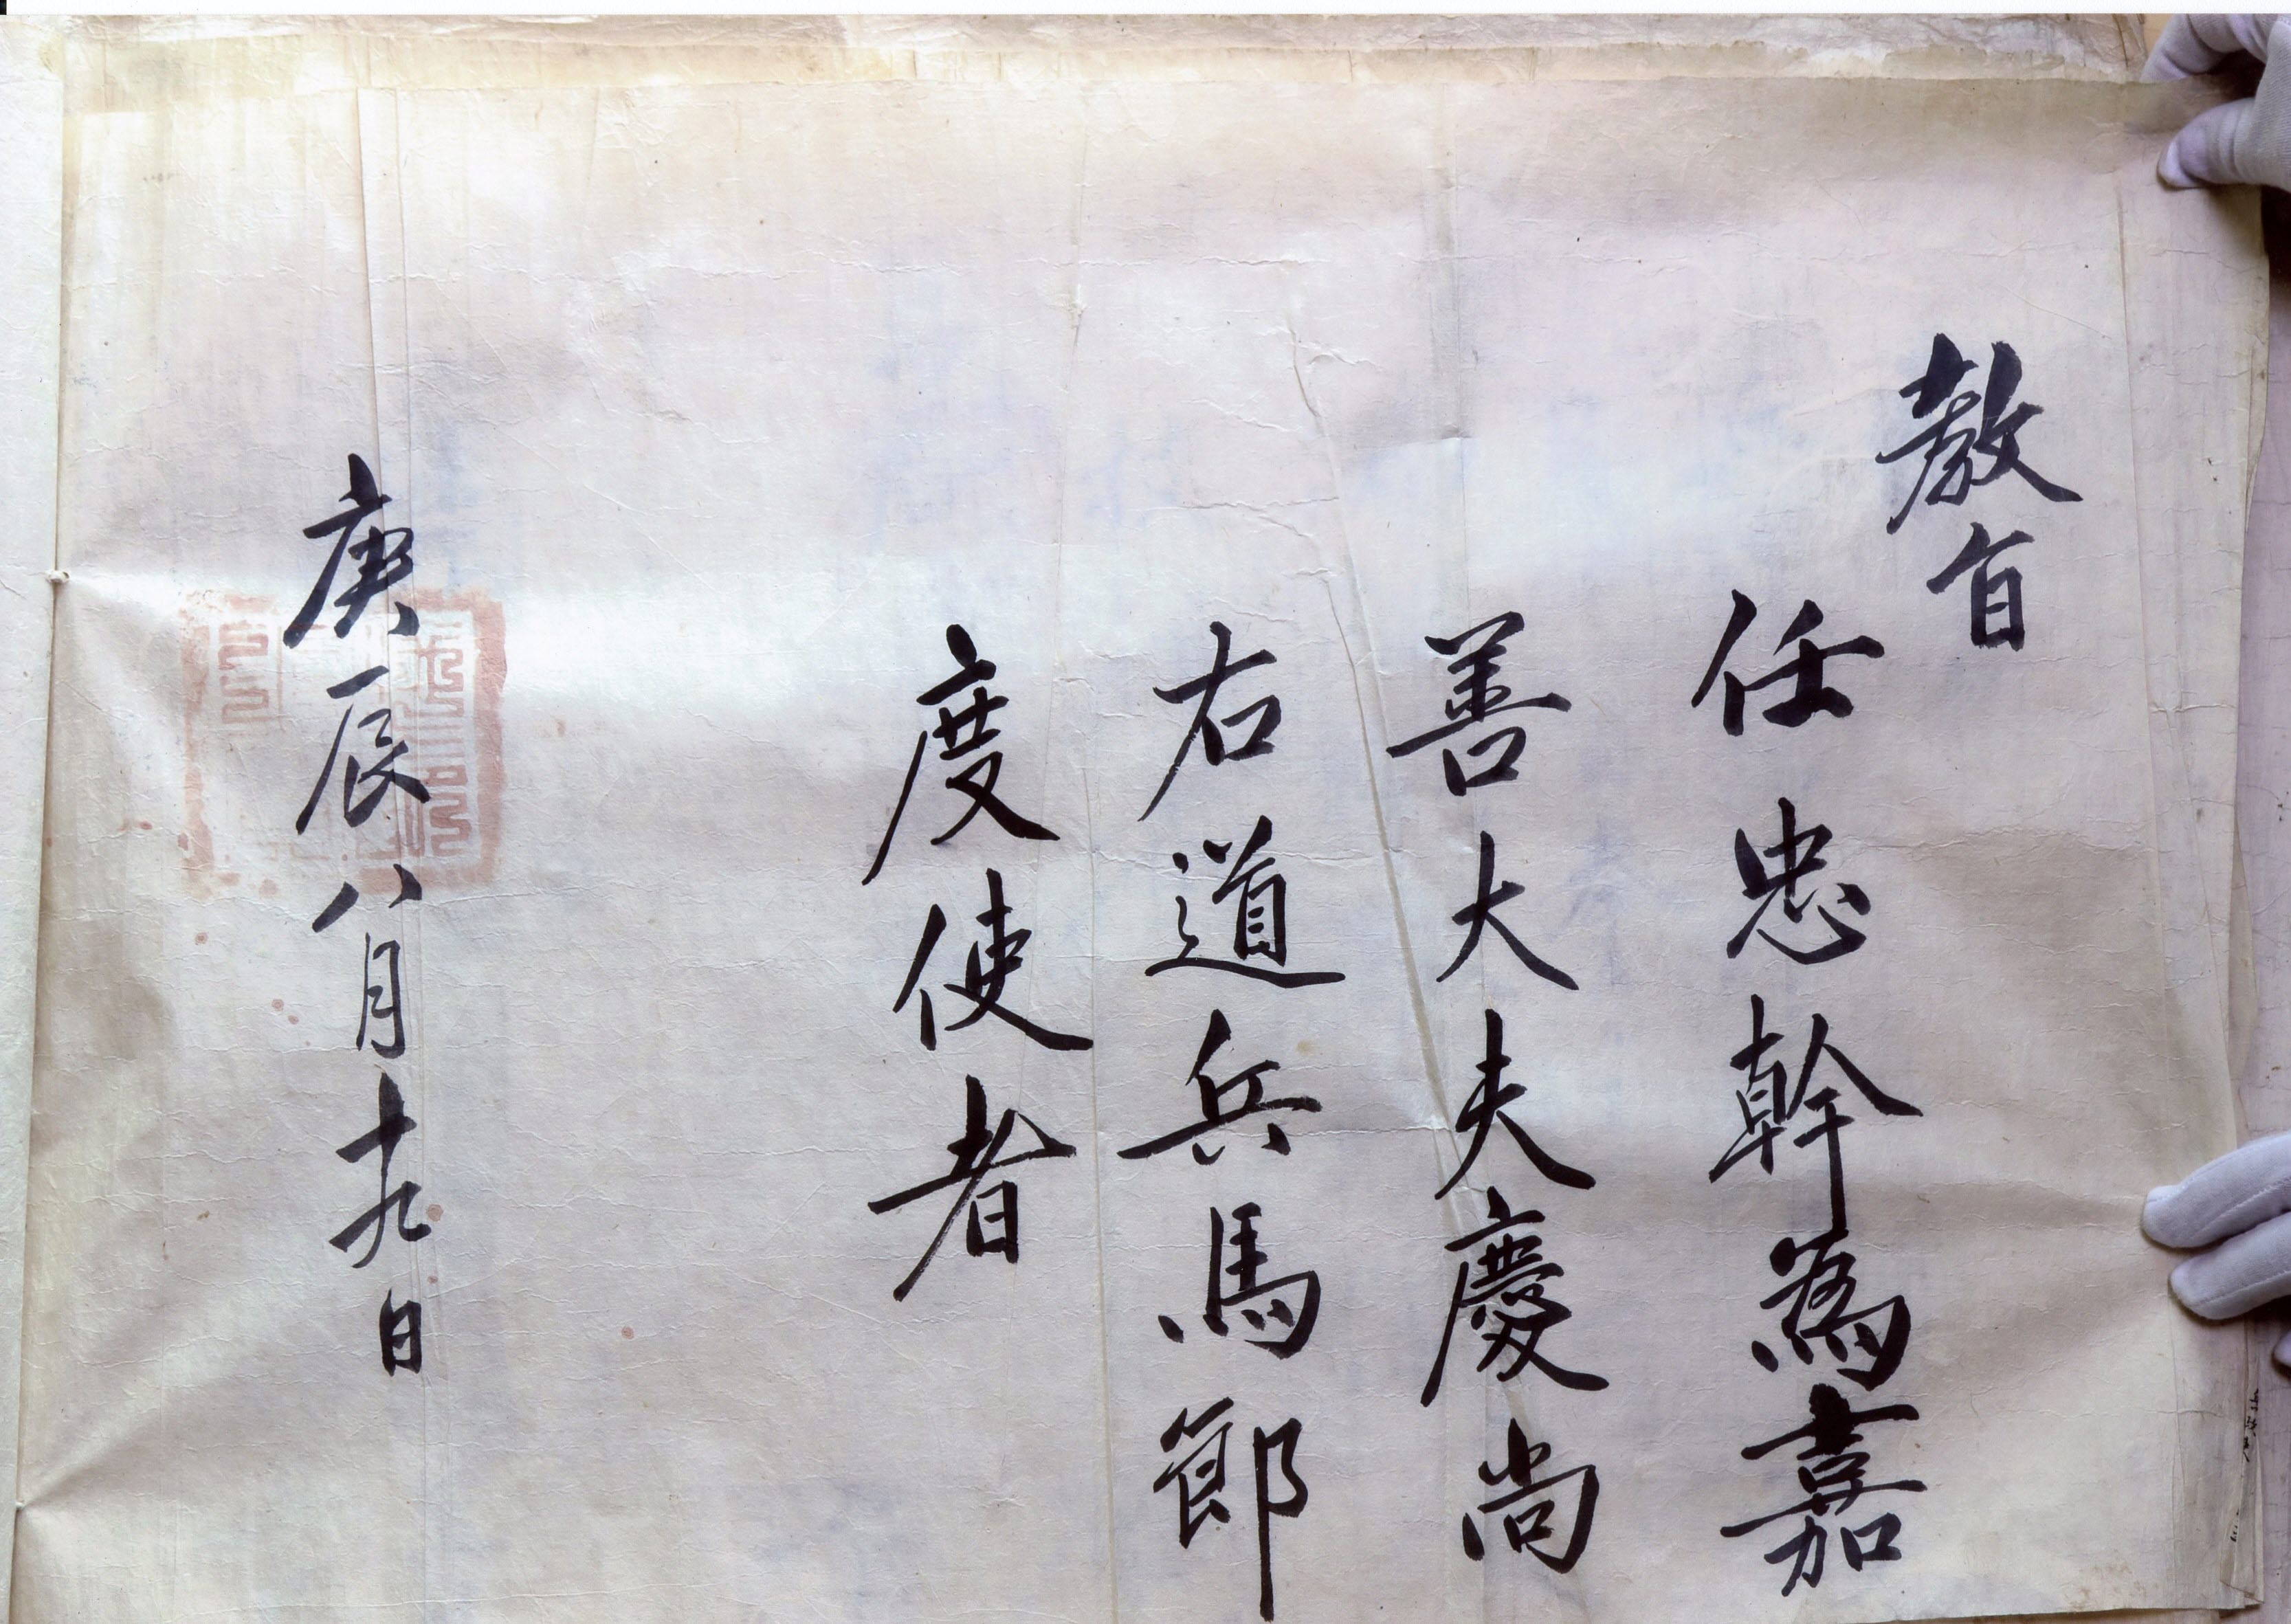 教旨
任忠幹為嘉
善大夫慶尚
右道兵馬節
度使者
庚辰八月十九日